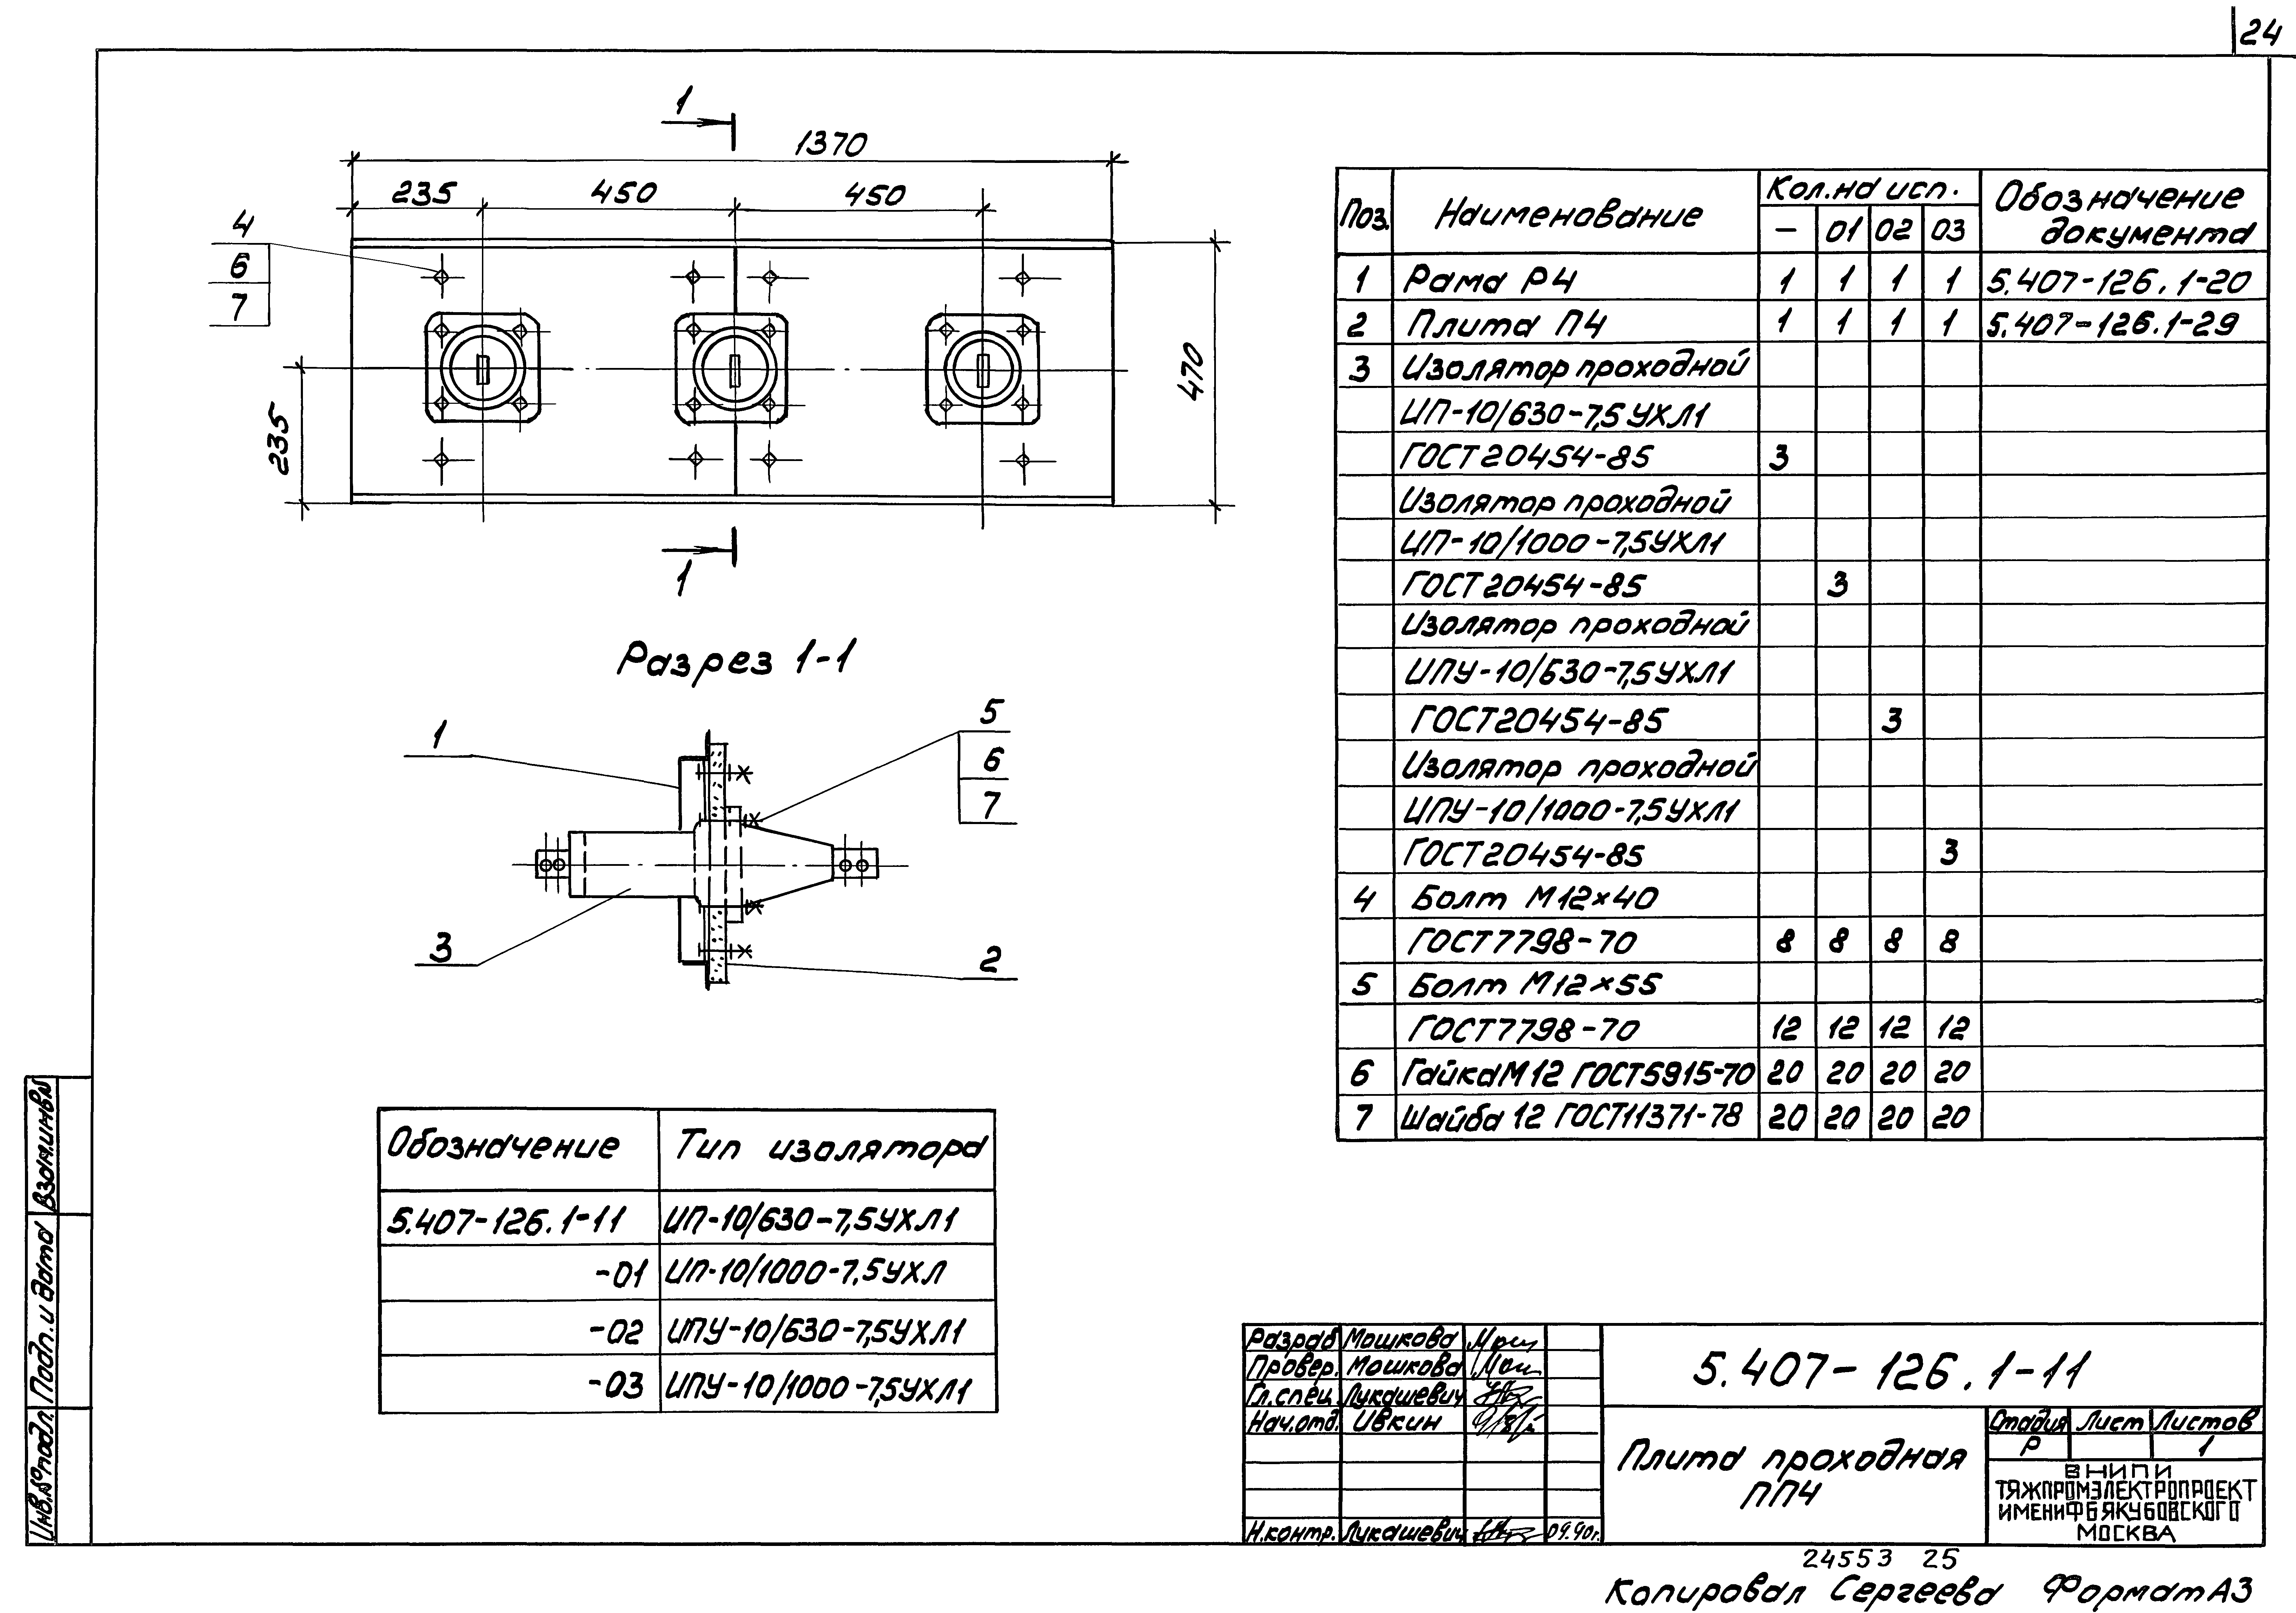 24
1
1370
235 450 450
4
6
7
235
470
1
Разрез 1-1
1
5
6
7
3
2
Поз. Наименование Кол. на исп. Обозначение документа
– 01 02 03
1 Рама Р4 1 1 1 1 5.407-126.1-20
2 Плита П4 1 1 1 1 5.407-126.1-29
3 Изолятор проходной
ИП-10/630-7,5 УХЛ1
ГОСТ 20454-85 3
Изолятор проходной
ИП-10/1000-7,5УХЛ1
ГОСТ 20454-85 3
Изолятор проходной
ИПУ-10/630-7,5УХЛ1
ГОСТ 20454-85 3
Изолятор проходной
ИПУ-10/1000-7,5УХЛ1
ГОСТ 20454-85 3
4 Болт М12×40
ГОСТ 7798-70 8 8 8 8
5 Болт М12×55
ГОСТ 7798-70 12 12 12 12
6 Гайка М12 ГОСТ5915-70 20 20 20 20
7 Шайба 12 ГОСТ11371-78 20 20 20 20
Обозначение Тип изолятора
5.407-126.1-11 ИП-10/630-7,5УХЛ1
-01 ИП-10/1000-7,5УХЛ
-02 ИПУ-10/630-7,5УХЛ1
-03 ИПУ-10/1000-7,5УХЛ1
Взам.инв.№
Подп. и дата
Инв.№подл.
Разраб Мошкова
Провер. Мошкова
Гл.спец. Лукашевич
Нач.отд. Ивкин
Н.контр. Лукашевич 09.90г.
5.407-126.1-11
Плита проходная
ПП4
Стадия Лист Листов
Р 1
ВНИПИ
ТЯЖПРОМЭЛЕКТРОПРОЕКТ
ИМЕНИ Ф Б ЯКУБОВСКОГО
МОСКВА
24553 25
Копировал Сергеева Формат А3